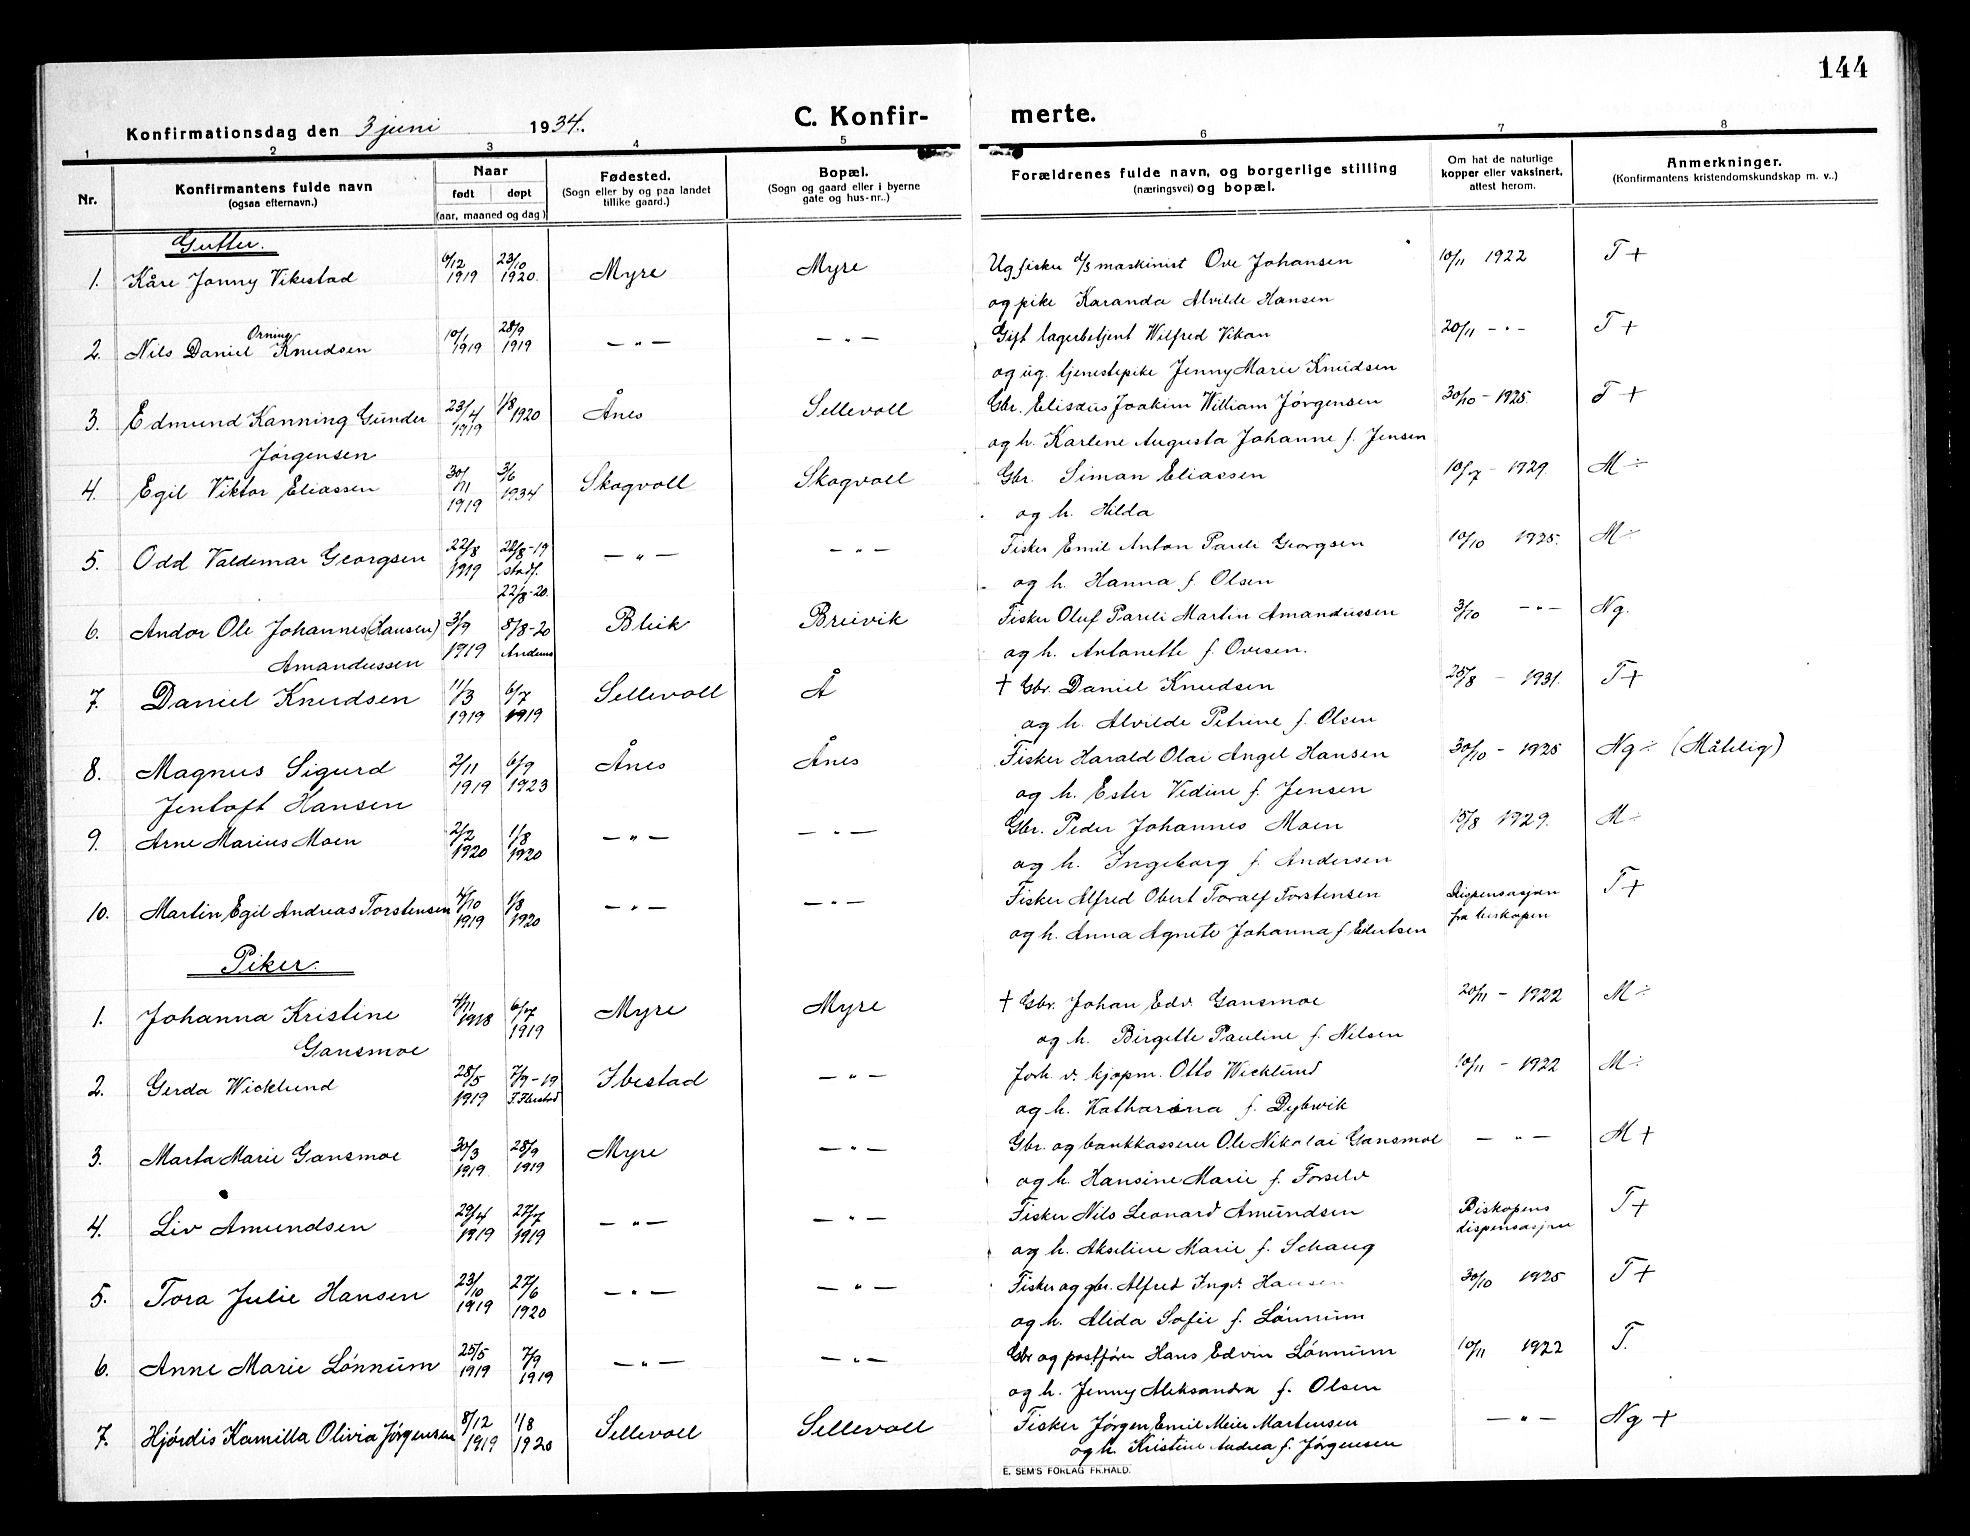 144
Konfirmationsdag den 3 juni 1934.
C. Konfirmerte.
1 2 3 4 5 6 7 8
Nr.
Konfirmantens fulde navn
(ogsaa efternavn.)
Naar
født døpt
(aar, maaned og dag)
Fødested.
(Sogn eller by og paa landet
tillike gaard.)
Bopæl.
(Sogn og gaard eller i byerne
gate og hus-nr.)
Forældrenes fulde navn, og borgerlige stilling
(næringsvei) og bopæl.
Om hat de naturlige
kopper eller vaksinert,
attest herom.
Anmerkninger.
(Konfirmantens kristendomskundskap m. v..)
Gutter.
1. Kåre Jonny Vikestad 6/12 1919 23/10 1920. Myre Myre Ug fisker o/s maskinist Ove Johansen 10/11 1922 T +
og pike Karanda Alvilde Hansen
2. Nils Daniel Orning Knudsen 10/1 1919 28/9 1919 — " — — " — Gift lagerbetjent Wilfred Vikan 20/11 — " — T +
og ug. tjenestepike Jenny Marie Knudsen
3. Edmund Kanning Gunder 23/4 1919 1/8 1920 Ånes Sellevoll Gbr. Elisæus Joakim William Jørgensen 30/10 - 1925. T +
Jørgensen og h. Karline Augusta Johanne f. Jensen
4. Egil Viktor Eliassen 30/11 1919 3/6 1934 Skogvoll Skogvoll Gbr. Siman Eliassen 10/7 - 1929. M ÷
og h. Hilda
5. Odd Valdemar Georgsen 22/8 1919 28/8-19 stadf. 22/8-20. — " — — " — Fisker Emil Anton Pauli Georgsen 10/10 1925. M ÷
og h. Hanna f. Olsen
6. Andor Ole Johannes (Hansen) 3/9 1919 8/8-20 Andenes Bleik Breivik Fisker Oluf Pauli Martin Amandussen 3/10 — " — Ng.
Amandussen og h. Antonette f. Ovesen.
7. Daniel Knudsen 11/3 1919 6/7 1919 Sellevoll Å † Gbr. Daniel Knudsen 25/8 - 1931. T +
og h. Alvilde Petrine f. Olsen
8. Magnus Sigurd 2/11 1919 6/9 1923 Ånes Ånes Fisker Harald Olai Angel Hansen 30/10 - 1925 Ng ÷ (Målelig)
Jentoft Hansen og h. Ester Vedine f. Jensen
9. Arne Marius Moen 2/2 1920 1/8 1920 — " — — " — Gbr. Peder Johannes Moen 15/8 1929. M ÷
og h. Ingeborg f. Andersen
10. Martin Egil Andreas Torstensen 4/10 1919 1/8 1920 — " — — " — Fisker Alfred Obert Toralf Torstensen Dispensasjon T +
og h. Anna Agnete Johanna f Edertsen fra biskopen
Piker.
1. Johanna Kristine 4/11 1918 6/7 1919 Myre Myre † Gbr. Johan Edv. Gansmoe 20/11 - 1922 M ÷
Gansmoe og h. Birgitte Pauline f. Nilsen
2. Gerda Wicklund 28/5 1919 7/9-19 Ibestad — " — forh. v. kjøpm. Otto Wicklund 10/11 - 1922 M ÷
og h. Katharina f. Dybwik
3. Marta Marie Gansmoe 30/3 1919. 28/9 1919 Myre — " — Gbr. og bankkasserer Ole Nikolai Gansmoe — " — M +
og h. Hansine Marie f. Forselv
4. Liv Amundsen 29/4 1919 27/7 1919 — " — — " — Fisker Nils Leonard Amundsen Biskopens T +
og h. Akseline Marie f. Schaug dispensasjon
5. Tora Julie Hansen 23/10 1919 27/6 1920 — " — — " — Fisker og gbr. Alfred Ingv. Hansen 30/10 1925 T +
og h. Alida Sofie f. Lønnum
6. Anne Marie Lønnum 25/5 1919 7/9 1919 — " — — " — Gbr og postfører Hans Edvin Lønnum 10/11 1922 T.
og h. Jenny Aleksandra f. Olsen
7. Hjørdis Kamilla Olivia Jørgensen 8/12 1919 1/8 1920 Sellevoll Sellevoll Fisker Jørgen Emil Meier Martensen — " — Ng +
og h. Kristine Andrea f. Jørgensen
E. SEM'S FORLAG FR.HALD.